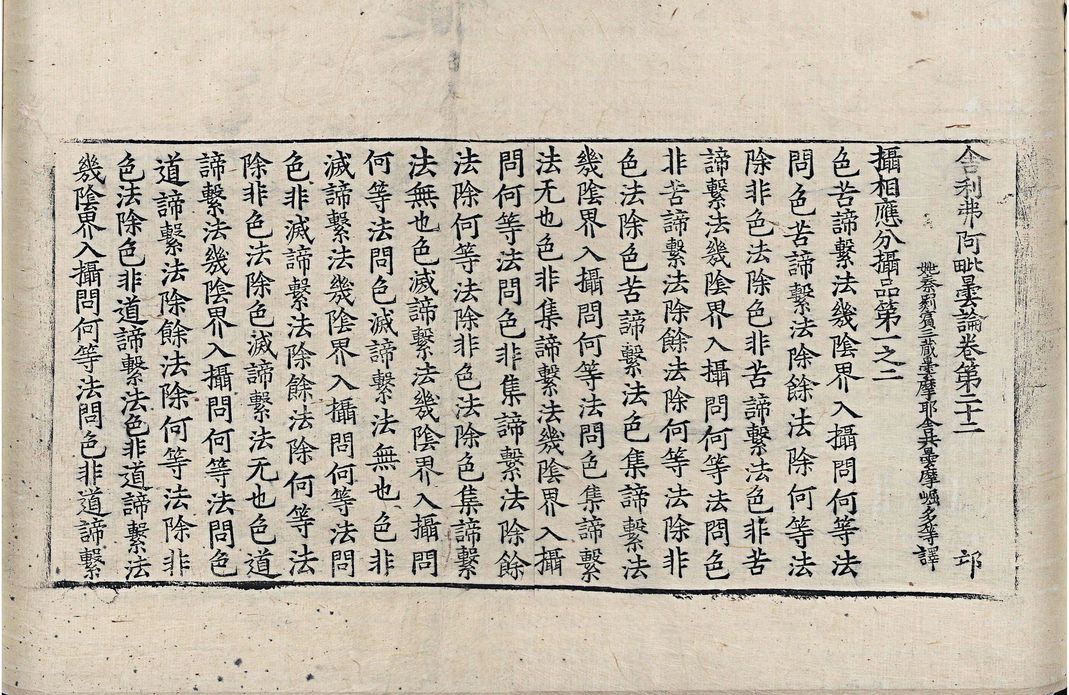 舍利弗阿毗曇論卷第二十二 邙
姚秦罽賓三藏曇摩耶舍共曇摩崛多等譯
攝相應分攝品第一之二
色苦諦繫法幾陰界入攝問何等法
問色苦諦繫法除餘法除何等法
除非色法除色非苦諦繫法色非苦
諦繫法幾陰界入攝問何等法問色
非苦諦繫法除餘法除何等法除非
色法除色苦諦繫法色集諦繫法
幾陰界入攝問何等法問色集諦繫
法无也色非集諦繫法幾陰界入攝
問何等法問色非集諦繫法除餘
法除何等法除非色法除色集諦繫
法無也色滅諦繫法幾陰界入攝問
何等法問色滅諦繫法無也色非
滅諦繫法幾陰界入攝問何等法問
色非滅諦繫法除餘法除何等法
除非色法除色滅諦繫法无也色道
諦繫法幾陰界入攝問何等法問色
道諦繫法除餘法除何等法除非
色法除色非道諦繫法色非道諦繫法
幾陰界入攝問何等法問色非道諦繫